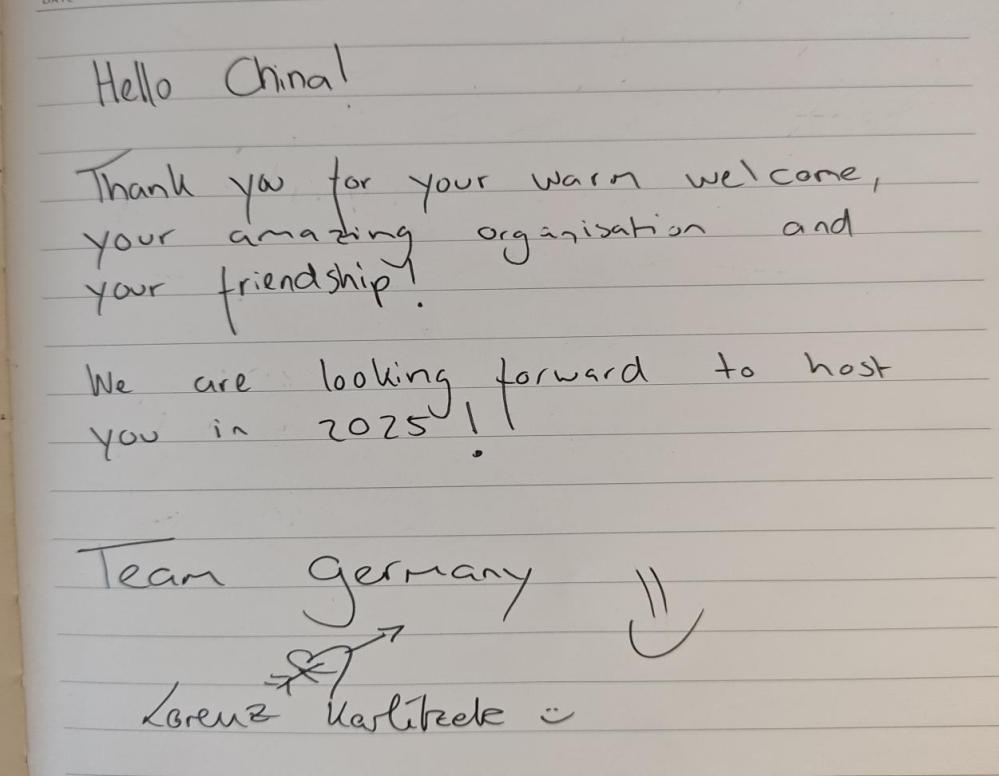 Hello China!
Thank you for your warm welcome,
your amazing organisation and
your friendship!
We are looking forward to host
you in 2025!
Team Germany
Lorenz